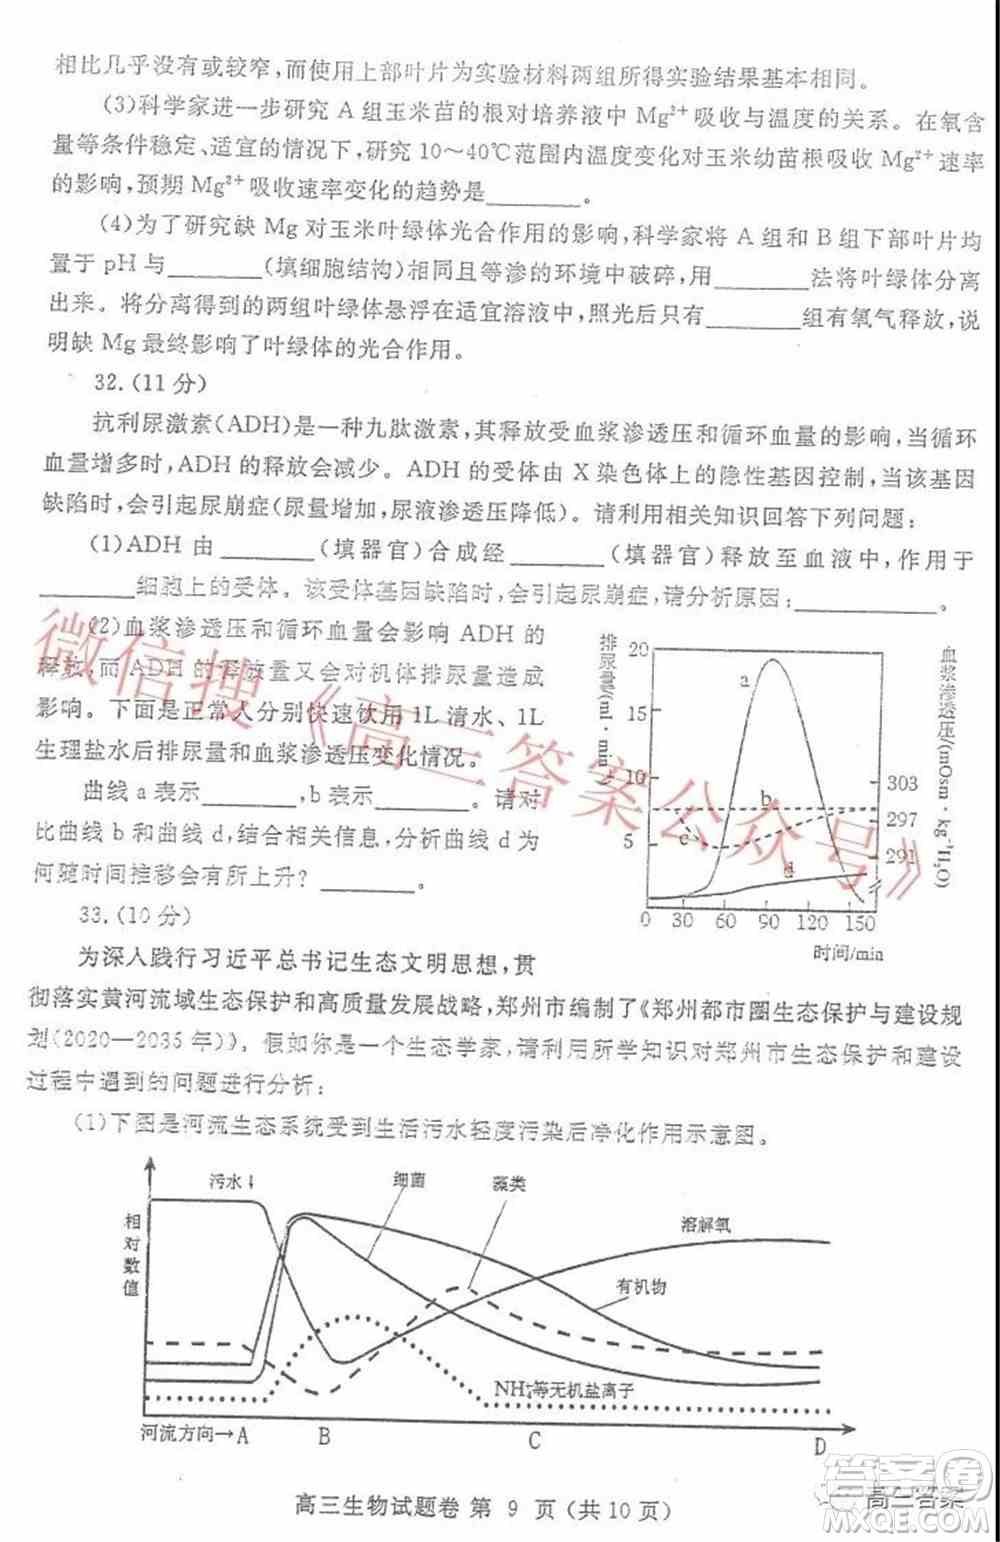 相比几乎没有或较窄,而使用上部叶片为实验材料两组所得实验结果基本相同。
(3)科学家进一步研究 A 组玉米苗的根对培养液中 Mg²⁺吸收与温度的关系。在氧含
量等条件稳定、适宜的情况下,研究 10～40℃范围内温度变化对玉米幼苗根吸收 Mg²⁺速率
的影响,预期 Mg²⁺吸收速率变化的趋势是________。
(4)为了研究缺 Mg 对玉米叶绿体光合作用的影响,科学家将 A 组和 B 组下部叶片均
置于 pH 与________(填细胞结构)相同且等渗的环境中破碎,用________法将叶绿体分离
出来。将分离得到的两组叶绿体悬浮在适宜溶液中,照光后只有________组有氧气释放,说
明缺 Mg 最终影响了叶绿体的光合作用。
32.(11 分)
抗利尿激素(ADH)是一种九肽激素,其释放受血浆渗透压和循环血量的影响,当循环
血量增多时,ADH 的释放会减少。ADH 的受体由 X 染色体上的隐性基因控制,当该基因
缺陷时,会引起尿崩症(尿量增加,尿液渗透压降低)。请利用相关知识回答下列问题:
(1)ADH 由________(填器官)合成经________(填器官)释放至血液中,作用于
________细胞上的受体。该受体基因缺陷时,会引起尿崩症,请分析原因:____________。
(2)血浆渗透压和循环血量会影响 ADH 的
释放,而 ADH 的释放量又会对机体排尿量造成
影响。下面是正常人分别快速饮用 1L 清水、1L
生理盐水后排尿量和血浆渗透压变化情况。
曲线 a 表示________,b 表示________。请对
比曲线 b 和曲线 d,结合相关信息,分析曲线 d 为
何随时间推移会有所上升? ________。
排尿量(ml·min⁻¹)
血浆渗透压/(mOsm·kg⁻¹H₂O)
20
15
10
5
303
297
291
a
b
c
d
0 30 60 90 120 150
时间/min
33.(10 分)
为深入践行习近平总书记生态文明思想,贯
彻落实黄河流域生态保护和高质量发展战略,郑州市编制了《郑州都市圈生态保护与建设规
划(2020—2035 年)》。假如你是一个生态学家,请利用所学知识对郑州市生态保护和建设
过程中遇到的问题进行分析:
(1)下图是河流生态系统受到生活污水轻度污染后净化作用示意图。
相对数值
污水↓
细菌
藻类
溶解氧
有机物
NH₄⁺等无机盐离子
河流方向→A B C D
高三生物试题卷 第 9 页(共 10 页)
微信搜《高三答案公众号》
答案卷
高三答案
MXQE.COM